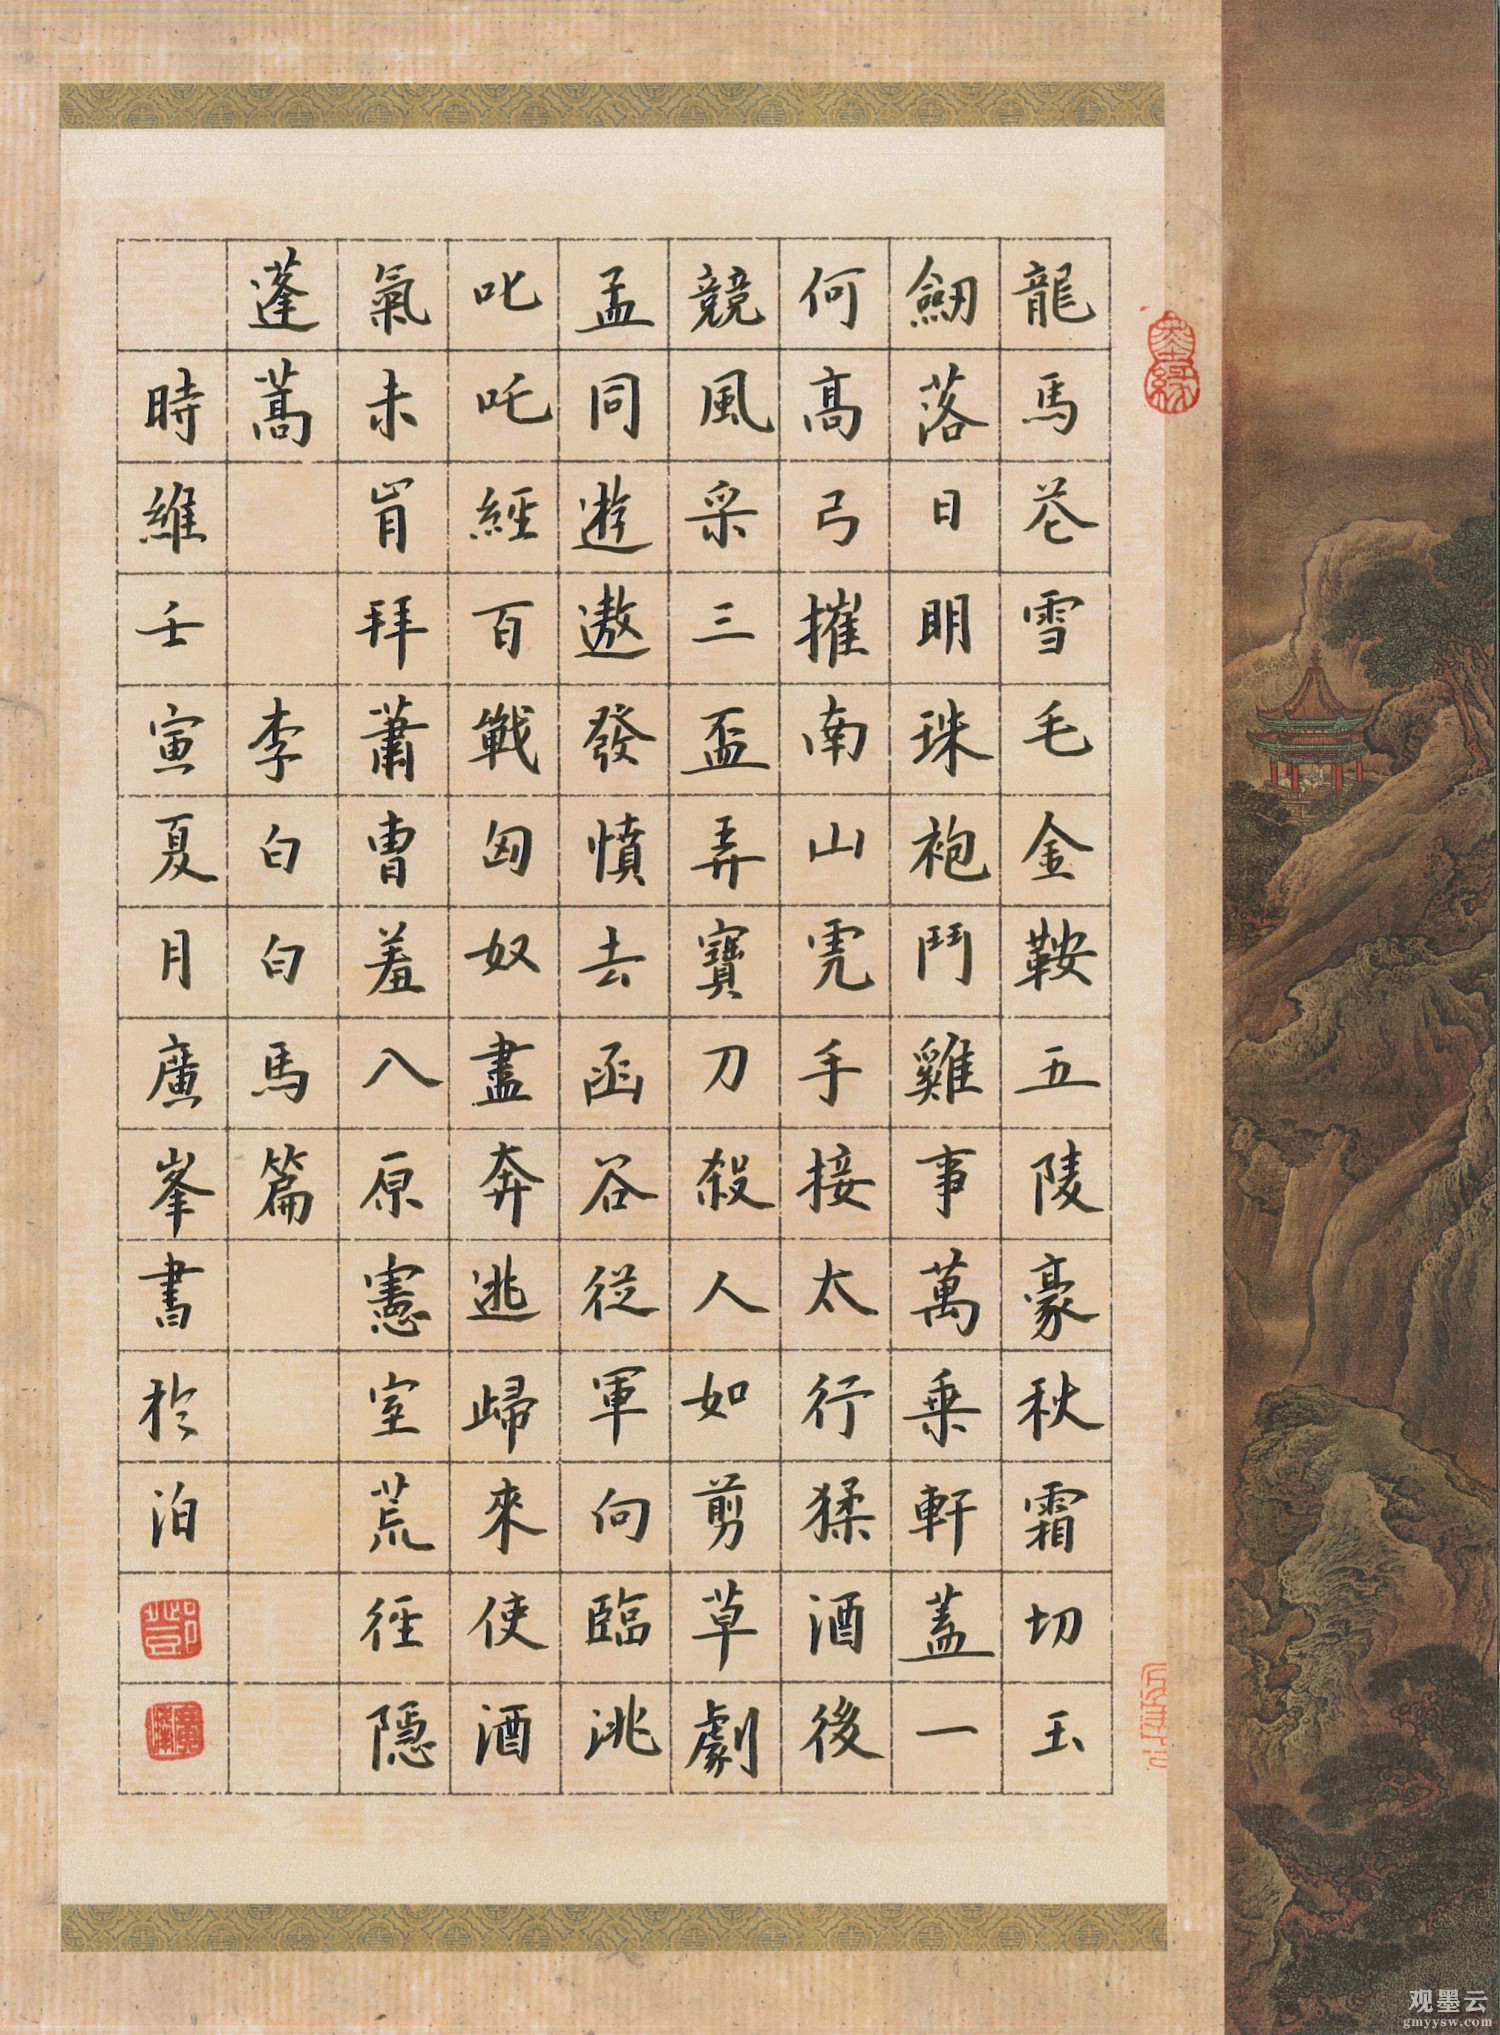 龍馬花雪毛金鞍五陵豪秋霜切玉
劒落日明珠袍鬥雞事萬乘軒蓋一
何高弓摧南山虎手接太行猱酒後
競風采三盃弄寶刀殺人如剪草劇
孟同遊遨發憤去函谷從軍向臨洮
叱吒經百戰匈奴盡奔逃歸來使酒
氣未肯拜蕭曹羞入原憲室荒徑隱
蓬蒿 李白白馬篇
時維壬寅夏月廣峯書於泊
墨緣
观墨云
gmyysw.com